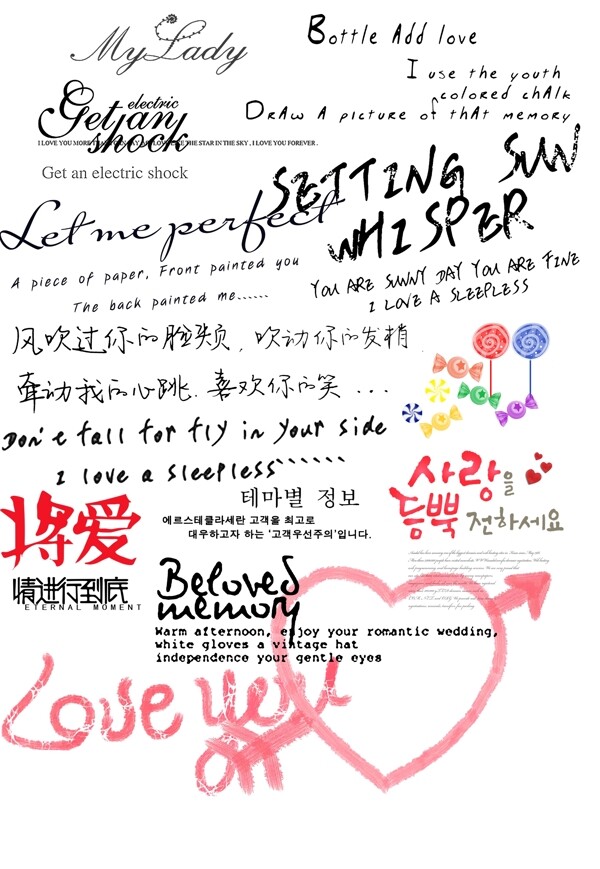 My Lady
Bottle Add love
I use the youth
colored chalk
Draw A picture of that memory
electric
Get an
shock
I LOVE YOU FOREVER .
Get an electric shock
SETTING SUN
WHISPER
Let me perfect
A piece of paper, Front painted you
The back painted me......
YOU ARE SUNNY DAY YOU ARE FINE
I LOVE A SLEEPLESS
风吹过你的脸颊，吹动你的发梢
牵动我的心跳.喜欢你的笑...
Don't fall for fly in your side
I love a sleepless``````
사랑을
듬뿍 전하세요
테마별 정보
에르스테클라세란 고객을 최고로
대우하고자 하는 '고객우선주의'입니다.
将爱
情进行到底
ETERNAL MOMENT
Beloved
memory
Warm afternoon, enjoy your romantic wedding,
white gloves a vintage hat
independence your gentle eyes
Love you